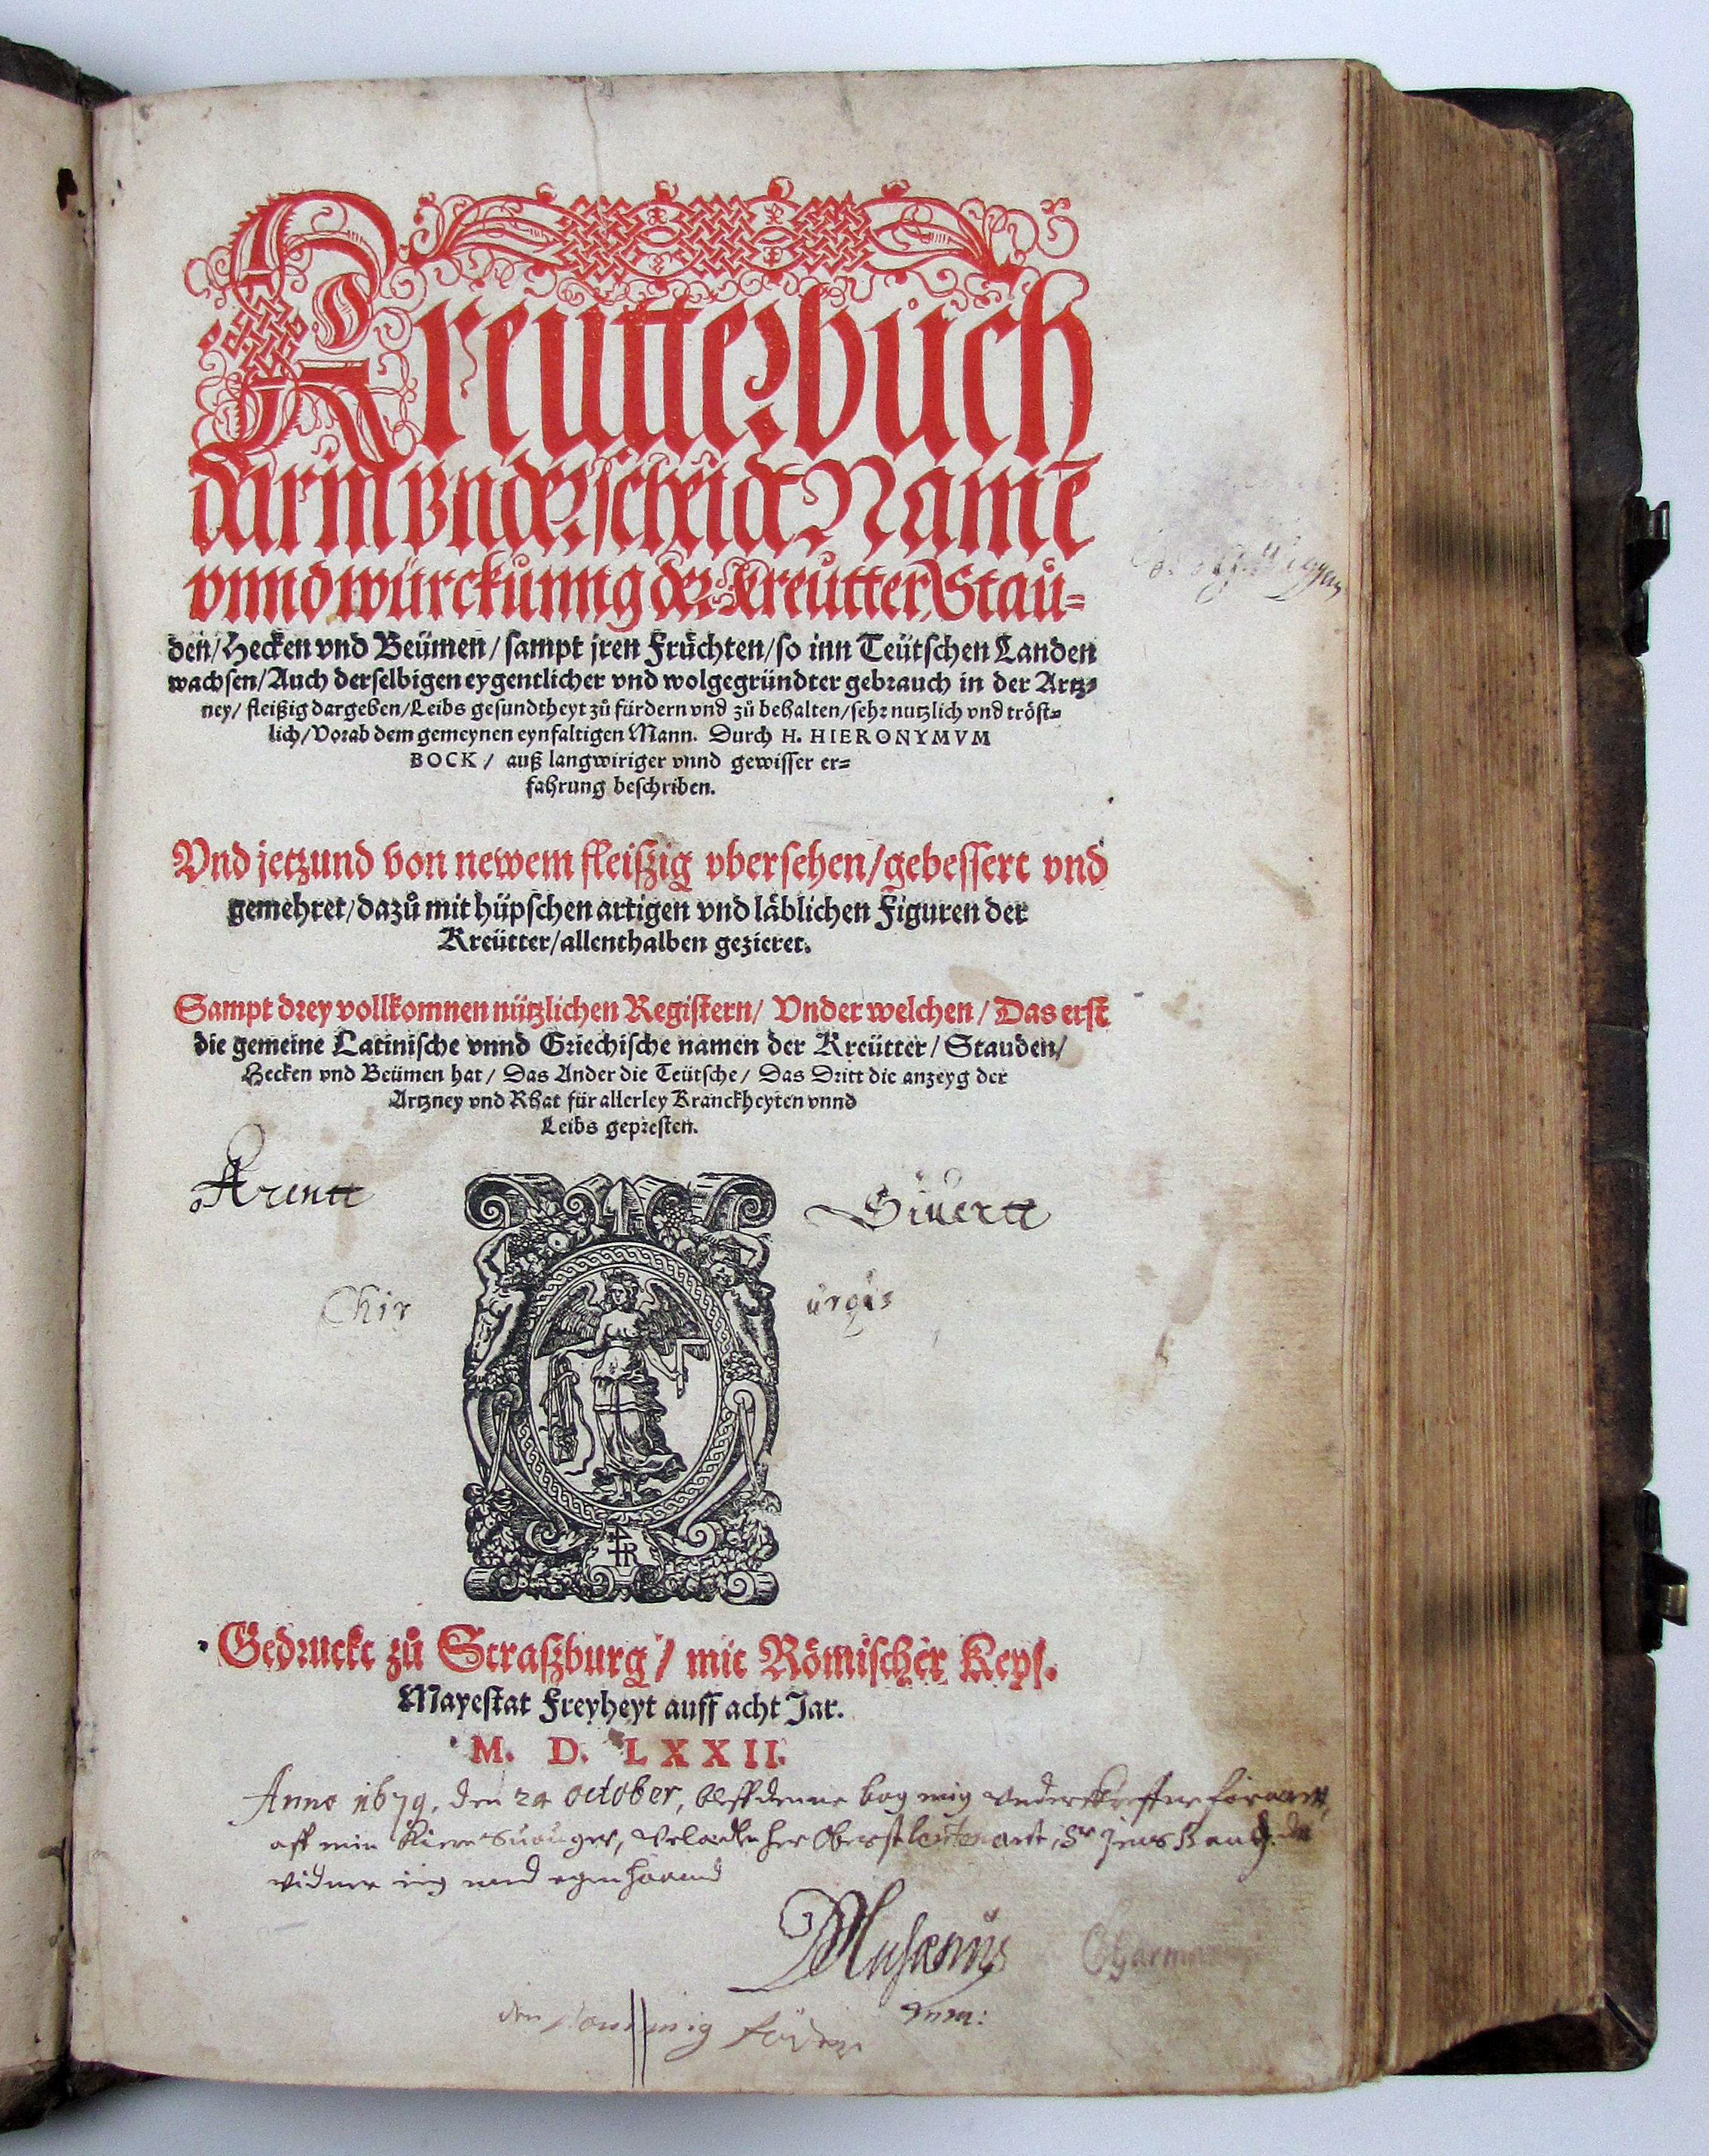 Kreutterbuch
darin̄ vnderscheidt Namē
vnnd würckunng der Kreutter/ Stau=
den/ Hecken vnd Beümen/ sampt jren Früchten/ so inn Teütschen Landen
wachsen/ Auch derselbigen eygentlicher vnd wolgegründter gebrauch in der Artz=
ney/ fleißig dargeben/ Leibs gesundtheyt zů fürdern vnd zů behalten/ sehr nutzlich vnd tröst=
lich/ Vorab dem gemeynen eynfaltigen Mann. Durch H. HIERONYMVM
BOCK/ auß langwiriger vnnd gewisser er=
fahrung beschriben.
Vnd jetzund von newem fleißig vbersehen/ gebessert vnd
gemehret/ dazů mit hüpschen artigen vnd läblichen Figuren der
Kreütter/ allenthalben gezieret.
Sampt drey vollkomnen nützlichen Registern/ Vnder welchen/ Das erst
die gemeine Latinische vnnd Griechische namen der Kreütter/ Stauden/
Hecken vnd Beümen hat/ Das Ander die Teütsche/ Das Dritt die anzeyg der
Artzney vnd Rhat für allerley Kranckheyten vnnd
Leibs gepresten.
Arentt Siuertt
Chir urgus
TR
Gedruckt zů Straßburg/ mit Römischer Keys.
Mayestat Freyheyt auff acht Jar.
M. D. LXXII.
Anno 1679, den 24 October, bleff denne bog mig underskreffne foraerit,
aff min Kiere Suoger, Velædle her Oberst leutenant, Sr Jens
vidner ieg med egen haand
Musænius
mm: